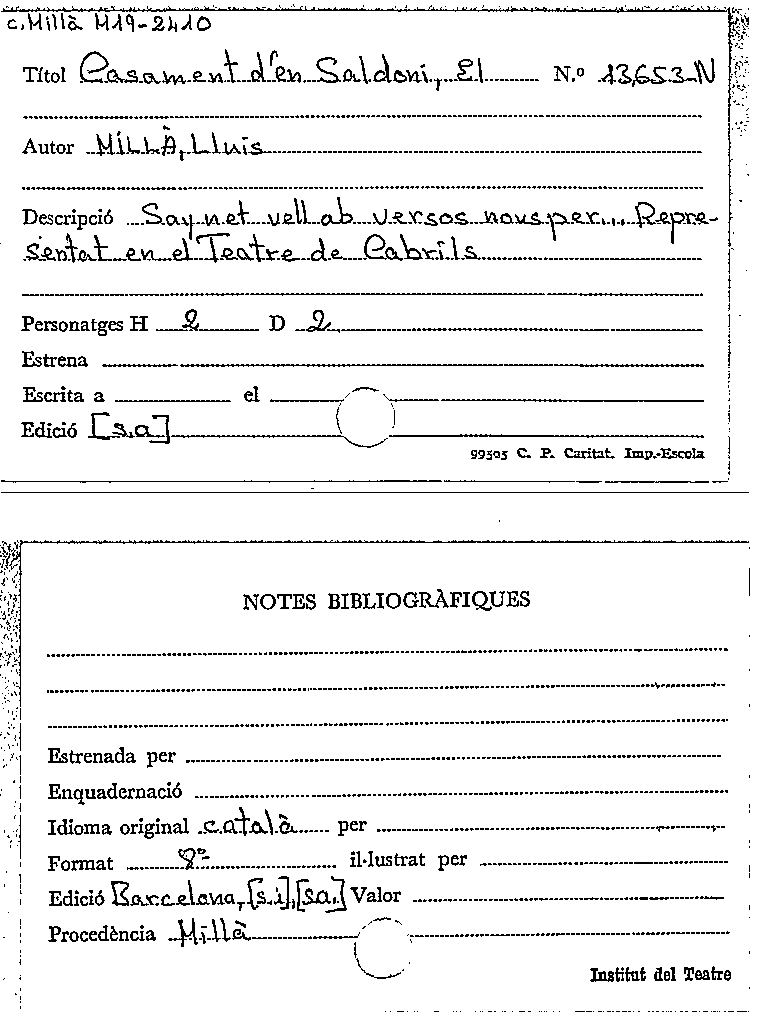 c.Millà M19-2410
Títol Casament d'en Saldoni, El N.º 13,653-N
Autor MILLÀ, Lluis
Descripció Saynet vell ab versos nous per... Repre-
sentat en el Teatre de Cabrils
Personatges H 2 D 2
Estrena
Escrita a el
Edició [s.a]
99505 C. P. Caritat. Imp.-Escola
NOTES BIBLIOGRÀFIQUES
Estrenada per
Enquadernació
Idioma original català per
Format 8º il·lustrat per
Edició Barcelona, [s.i], [sa.] Valor
Procedència Millà
Institut del Teatre